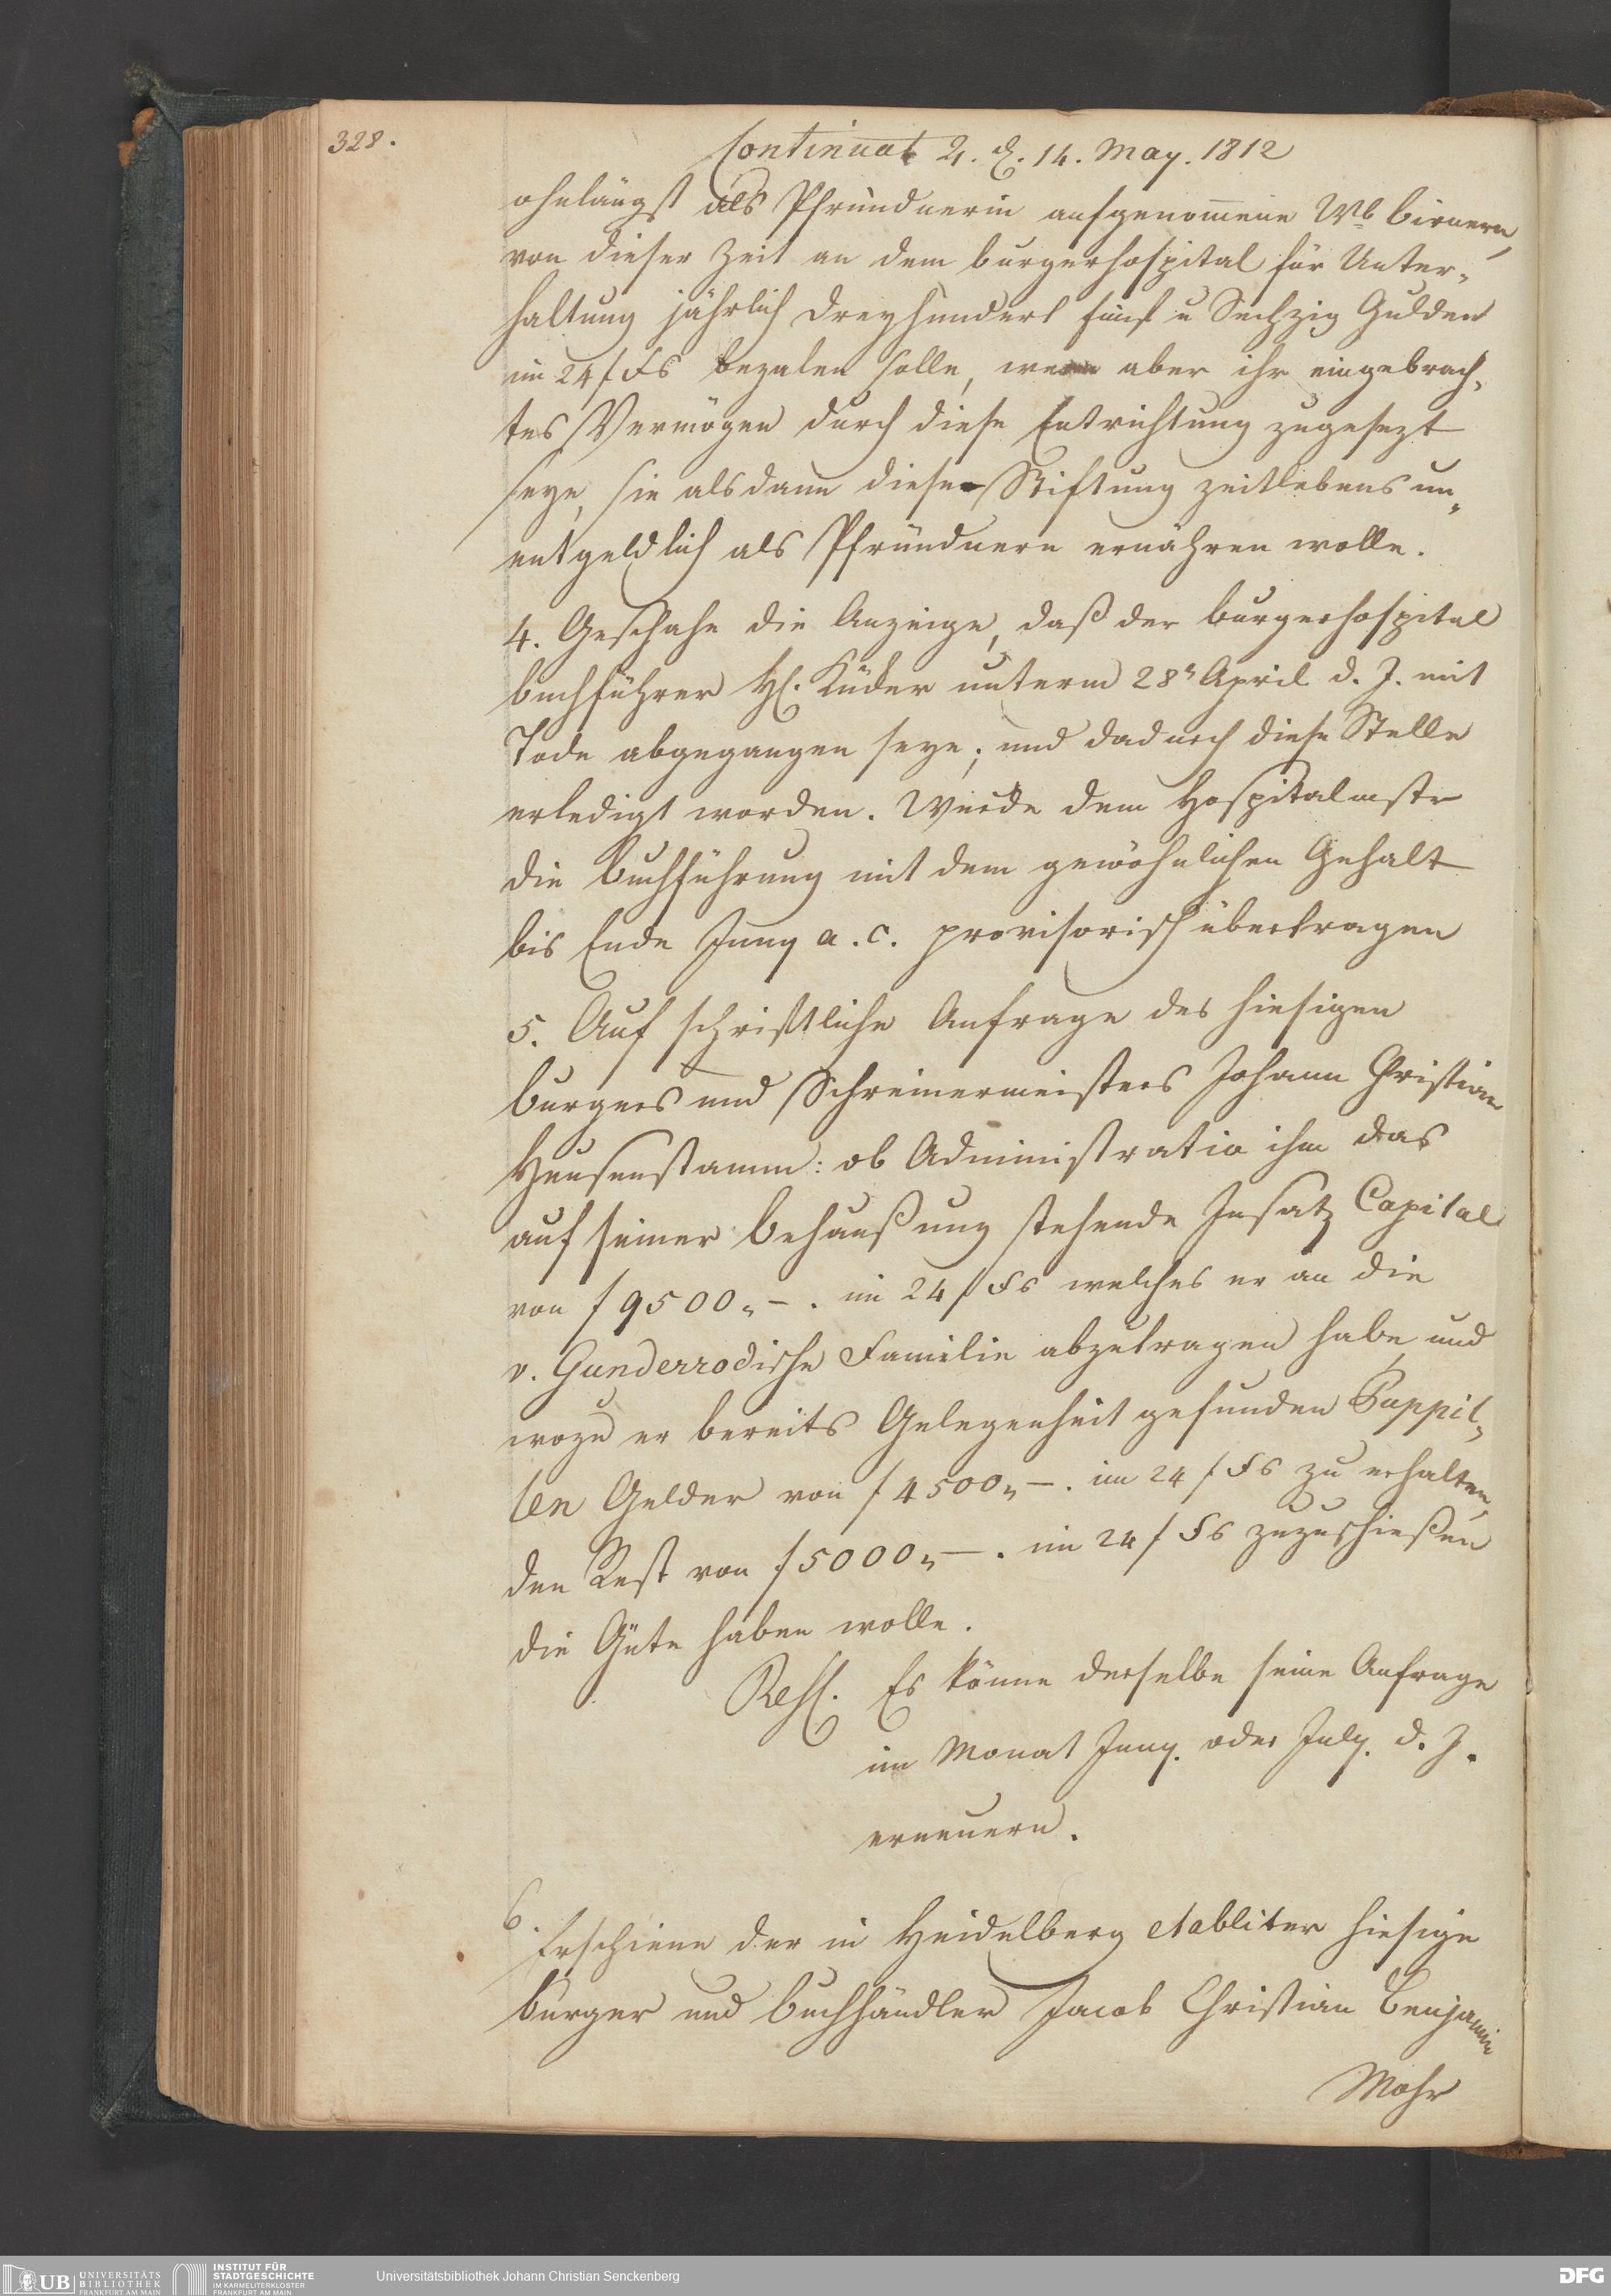 328.
Continuat 4. d. 14. May. 1812
ohnlängst als Pfründnerin aufgenom̅ene Wb Birnern,
von dieser Zeit an dem Burgerhospital für Unter-
haltung jährlich Dreyhundert fünf u Sechzig Gulden
im 24 f Fs bezalen solle, wenn aber ihr eingebrach-
tes Vermögen durch diese Entrichtung zugesezt
seye, sie alsdann diese Stiftung zeitlebens un-
entgeldlich als Pfründnern ernähren wolle.
4. Geschahe die Anzeige, daß der Burgerhospital
buchführer H. Küder unterm 28n April d. J. mit
Tode abgegangen seye; und dadurch diese Stelle
erledigt worden. Wurde dem Hospitalmstr
die Buchführung mit dem gewöhnlichen Gehalt
bis Ende Juny a. c. provisorisch übertragen
5. Auf schriftliche Anfrage des hiesigen
Burgers und Schreinermeisters Johann Christian
Heusenstamm: ob Administratio ihm das
auf seiner Behaußung stehende Insatz Capital
von f 9500„ – . im 24 f Fs welches er an die
v. Gunderrodische Familie abzutragen habe, und
wozu er bereits Gelegenheit gefunden Puppil-
len Gelder von f 4500„ – . im 24 f Fs zu erhalten,
den Rest von f 5000„ – . im 24 f Fs zuzuschießen
die Güte haben wolle.
Resl. Es könne derselbe seine Anfrage
im Monat Juny. oder July. d. J.
erneuern.
6.
Erschiene der in Heidelberg etabliter hiesige
Bürger und Buchhändler Jacob Christian Benjamin
Mohr
UB UNIVERSITÄTS
BIBLIOTHEK
FRANKFURT AM MAIN
INSTITUT FÜR
STADTGESCHICHTE
IM KARMELITERKLOSTER
FRANKFURT AM MAIN
Universitätsbibliothek Johann Christian Senckenberg
DFG